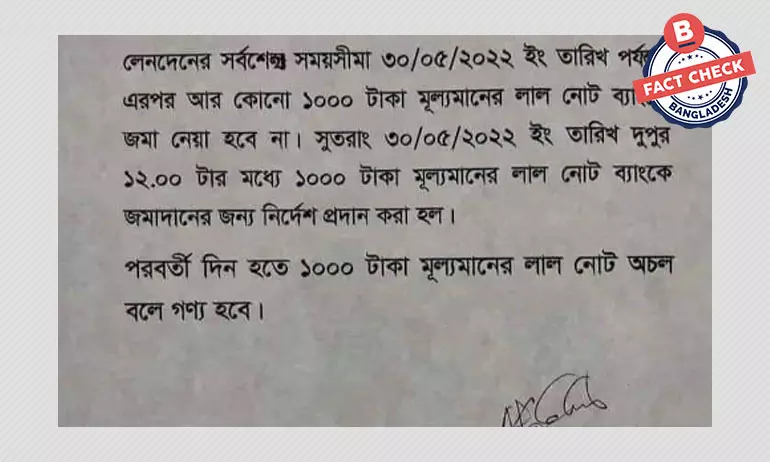 লেনদেনের সর্বশেষ সময়সীমা ৩০/০৫/২০২২ ইং তারিখ
এরপর আর কোনো ১০০০ টাকা মূল্যমানের লাল নোট
জমা নেয়া হবে না। সুতরাং ৩০/০৫/২০২২ ইং তারিখ দুপুর
১২.০০ টার মধ্যে ১০০০ টাকা মূল্যমানের লাল নোট ব্যাংকে
জমাদানের জন্য নির্দেশ প্রদান করা হল।
পরবর্তী দিন হতে ১০০০ টাকা মূল্যমানের লাল নোট অচল
বলে গণ্য হবে।
B
FACT CHECK
BANGLADESH